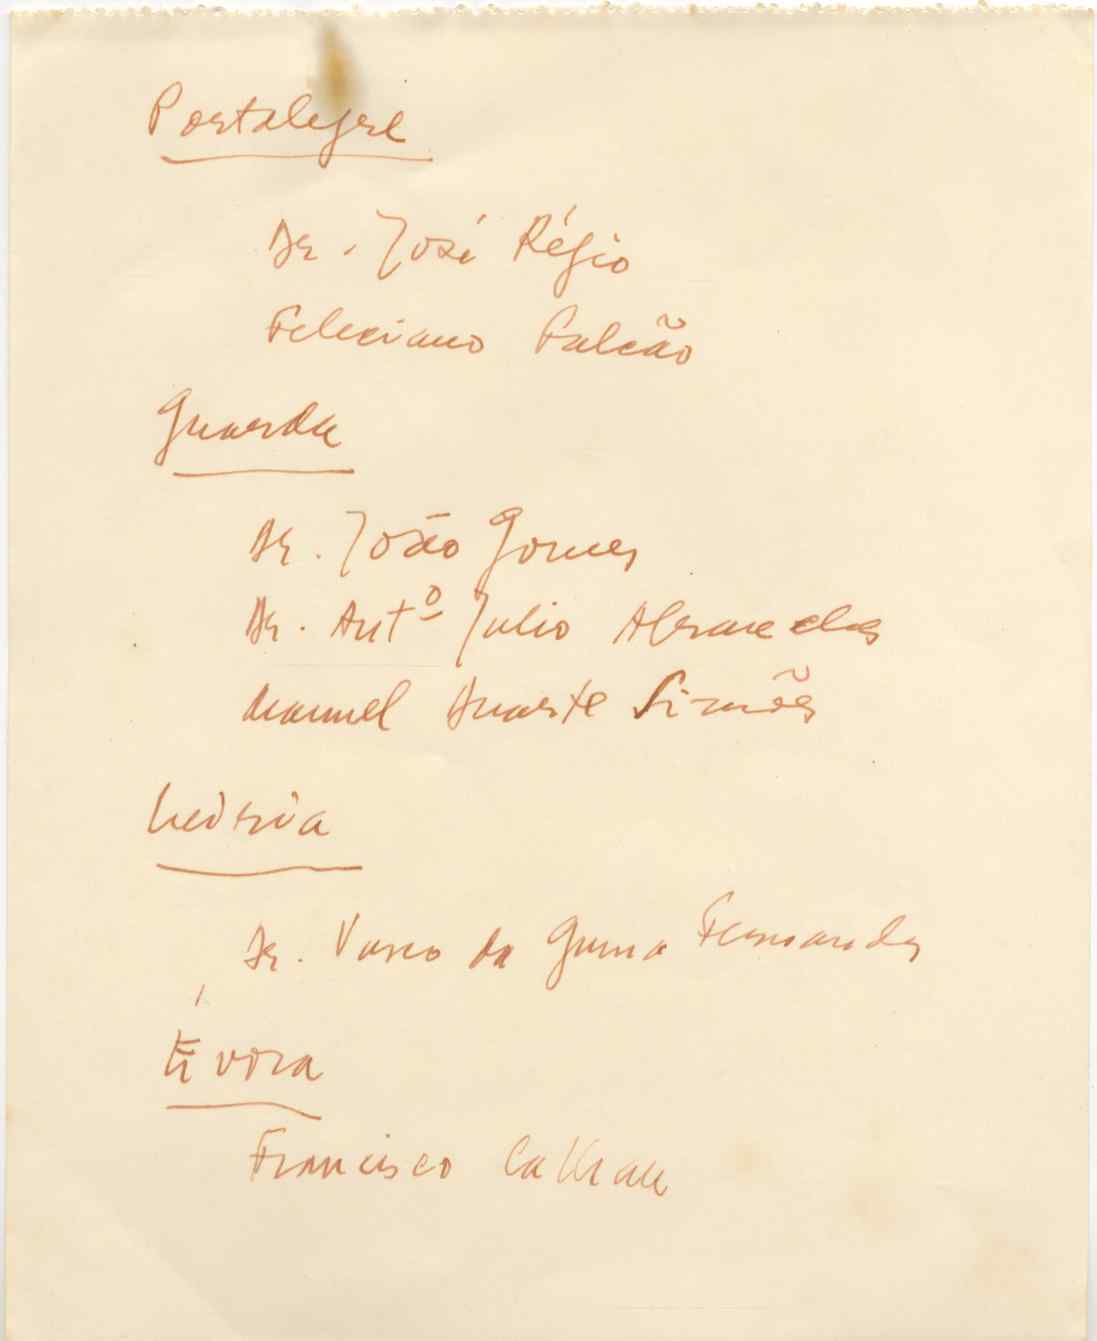 Portalegre
Dr. José Régio
Feliciano Falcão
Guarda
Dr. João Gomes
Dr. Antº Julio Abrandes
Manuel Duarte Simões
Leiria
Dr. Vasco da Gama Fernandes
Évora
Francisco